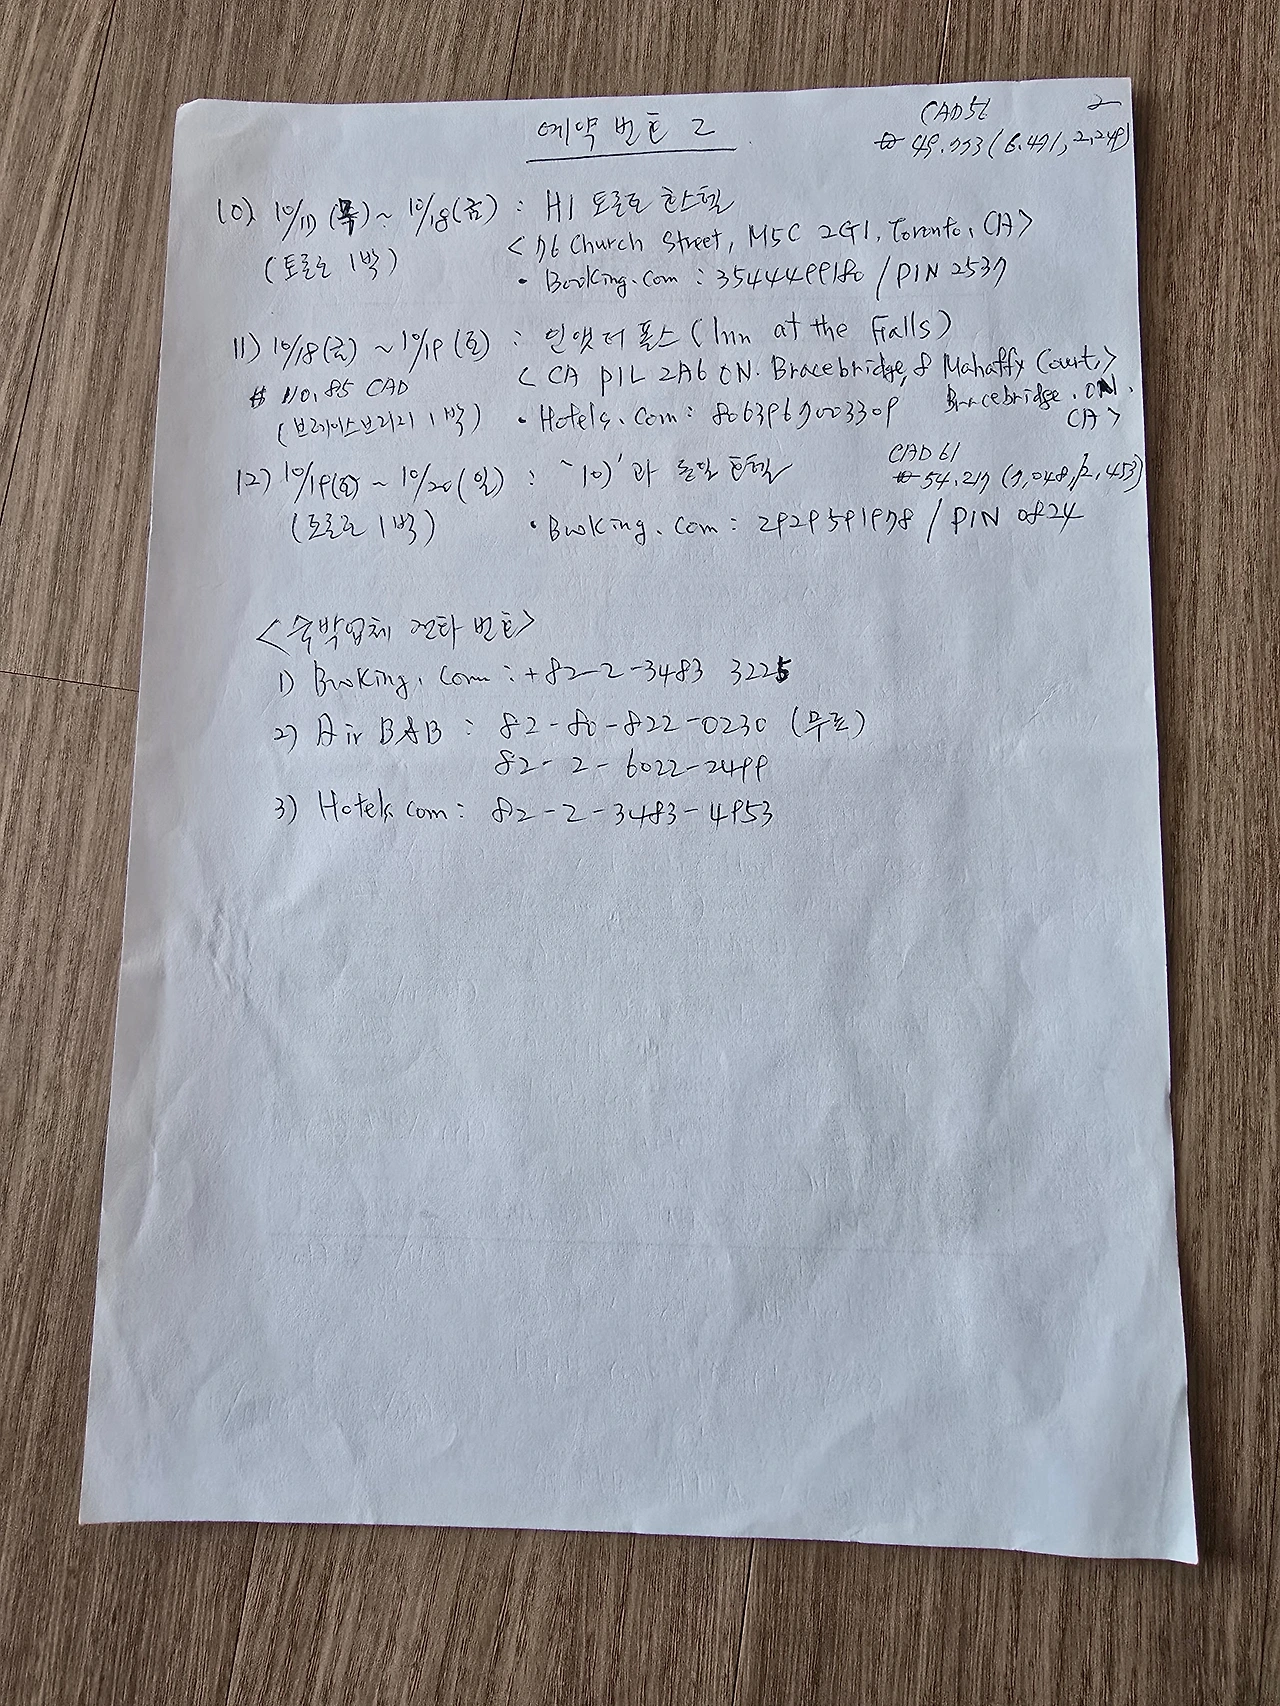 2
예약 번호 2
CAD 56
₩ 49.773 (6.471, 2,249)
10) 10/17 (목) ~ 10/18 (금) : HI 토론토 호스텔
(토론토 1박)
< 76 Church Street, M5C 2G1, Toronto, CA >
• Booking.com : 3544499180 / PIN 2537
11) 10/18 (금) ~ 10/19 (토) : 인앳더폴스 (Inn at the Falls)
$ 110.85 CAD
< CA P1L 2A6 ON. Bracebridge, 8 Mahaffy Court,
Bracebridge. ON.
CA >
(브레이스브리지 1박)
• Hotels.com : 8063967003309
CAD 61
₩ 54.217 (7,048, 2,453)
12) 10/19 (토) ~ 10/20 (일) : '10)'과 동일 호텔
(토론토 1박)
• Booking.com : 2929591978 / PIN 0824
<숙박업체 전화 번호>
1) Booking.com : +82-2-3483 3225
2) Air B&B : 82-80-822-0230 (무료)
82-2-6022-2499
3) Hotels.com : 82-2-3483-4953